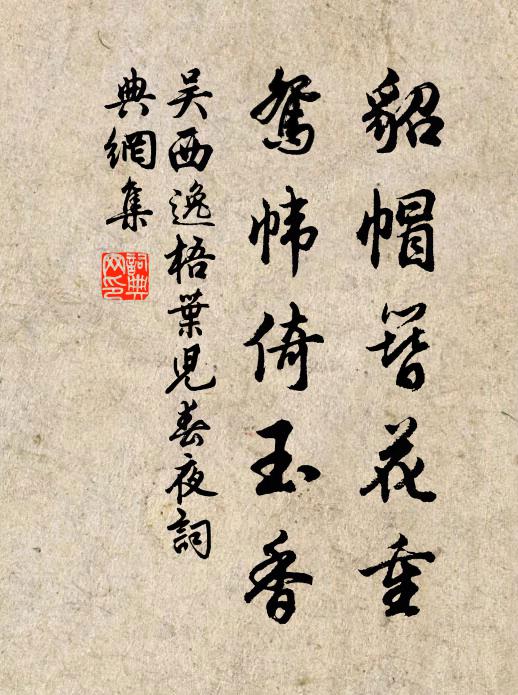 貂帽簪花重
鴛幃倚玉香
吳西逸梧葉兒春夜詞
典網集
詞典
网印